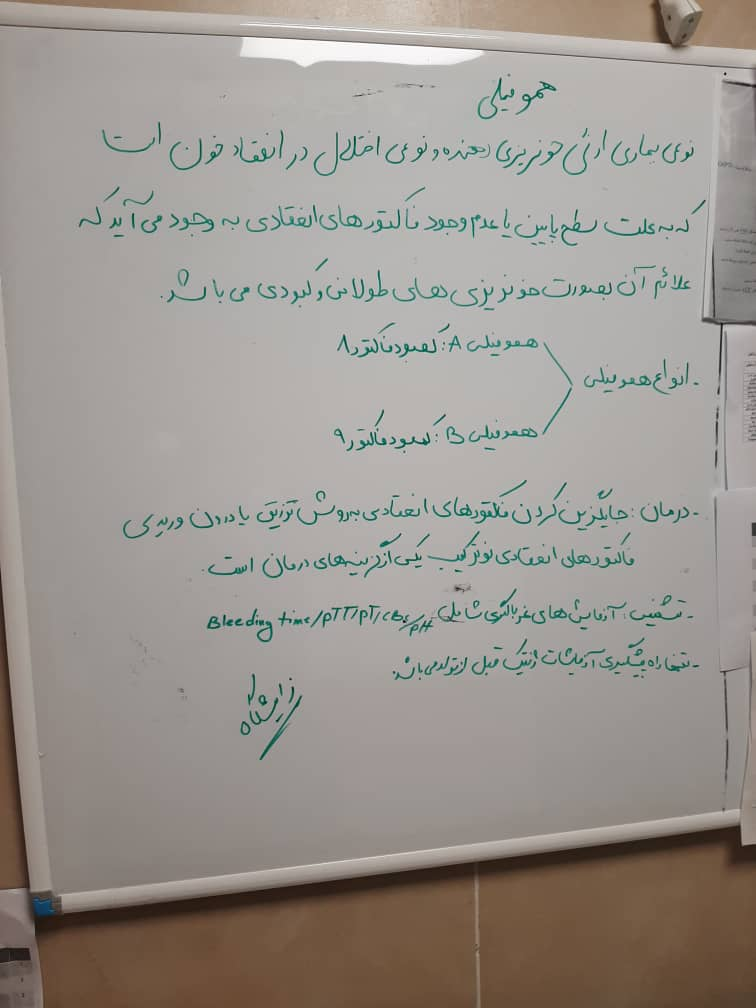 هموفیلی
نوعی بیماری ارثی خونریزی دهنده و نوعی اختلال در انعقاد خون است
که به علت سطح پایین یا عدم وجود فاکتورهای انعقادی به وجود می آید که
علائم آن بصورت خونریزی های طولانی و کبودی می باشد.
- انواع هموفیلی
هموفیلی A: کمبود فاکتور ۸
هموفیلی B: کمبود فاکتور ۹
- درمان: جایگزین کردن فاکتورهای انعقادی به روش تزریق یا درون وریدی
فاکتورهای انعقادی نوترکیب یکی از گزینه های درمان است.
- تشخیص: آزمایش های غربالگری شامل Bleeding time/PTT/PT/CBC/
- تنها راه پیشگیری آزمایشات ژنتیک قبل از تولد می باشد.
زایشگاه